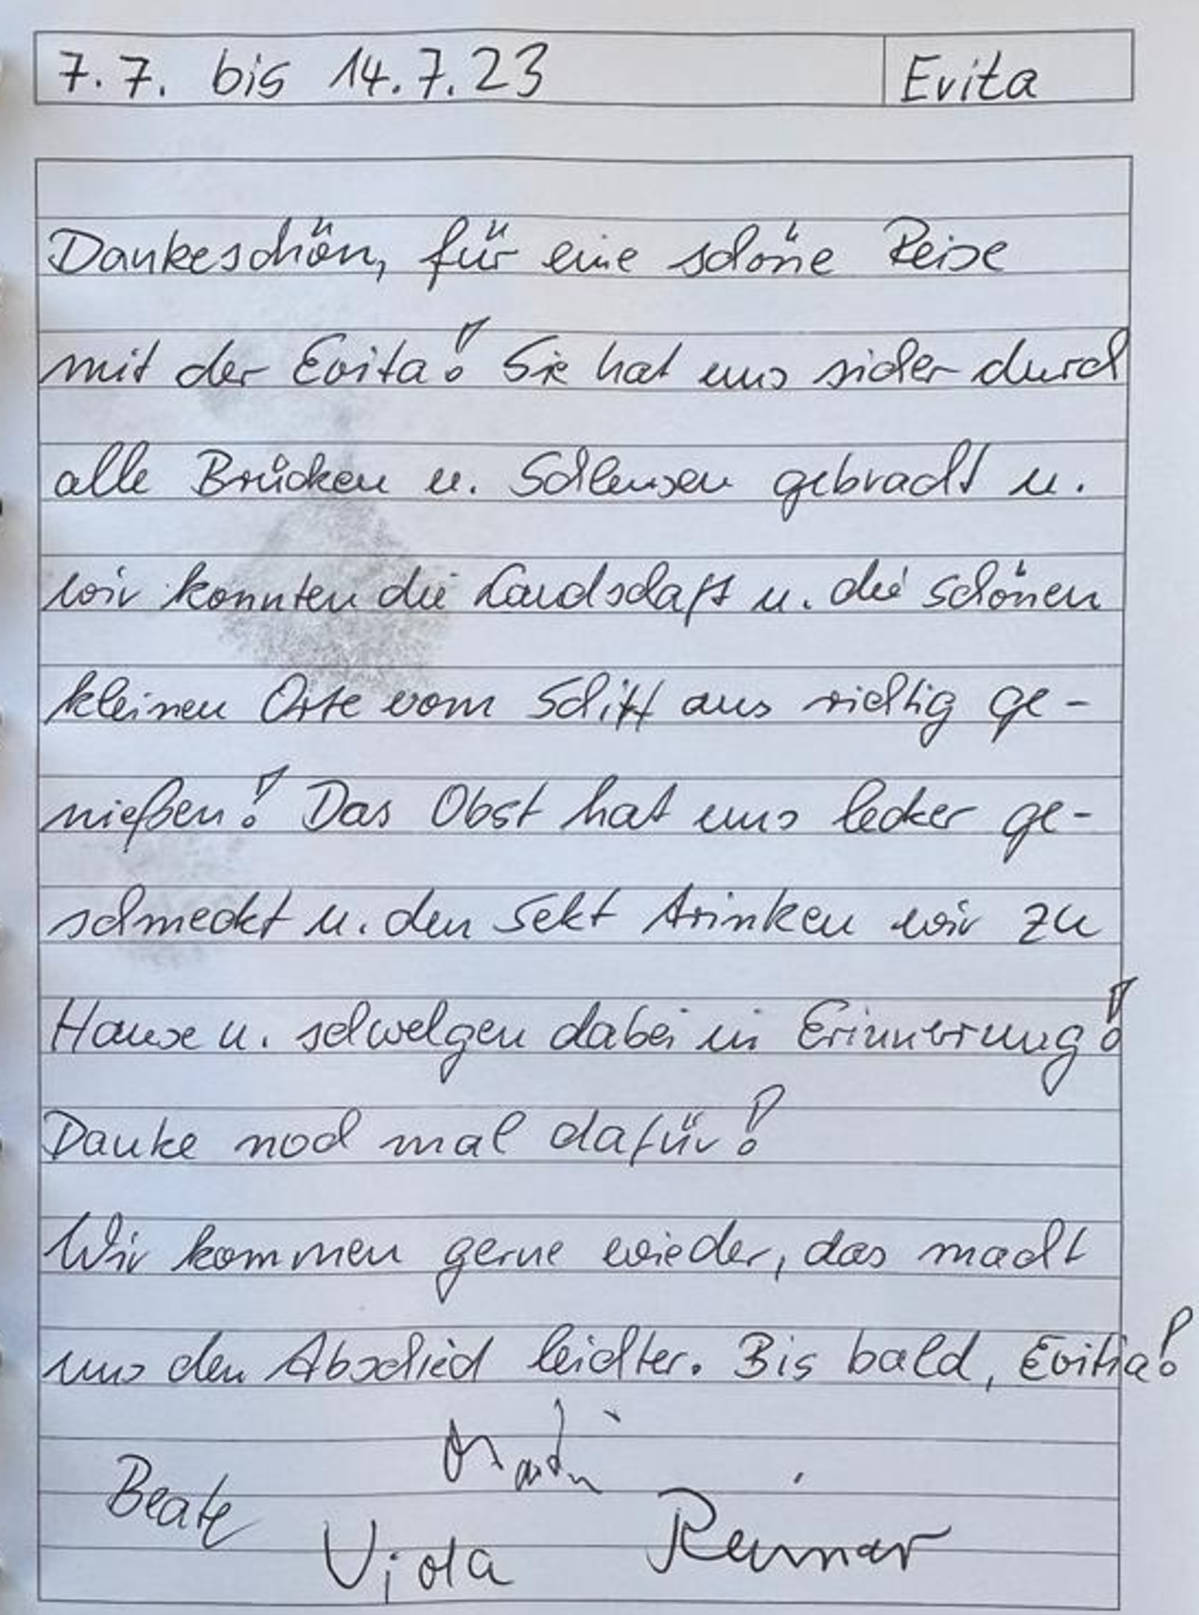 7.7. bis 14.7.23 Evita
Dankeschön, für eine schöne Reise
mit der Evita! Sie hat uns sicher durch
alle Brücken u. Schleusen gebracht u.
wir konnten die Landschaft u. die schönen
kleinen Orte vom Schiff aus richtig ge-
nießen! Das Obst hat uns lecker ge-
schmeckt u. den Sekt trinken wir zu
Hause u. schwelgen dabei in Erinnerung!
Danke noch mal dafür!
Wir kommen gerne wieder, das macht
uns den Abschied leichter. Bis bald, Evitia!
Martin
Beate
Viola Reimar